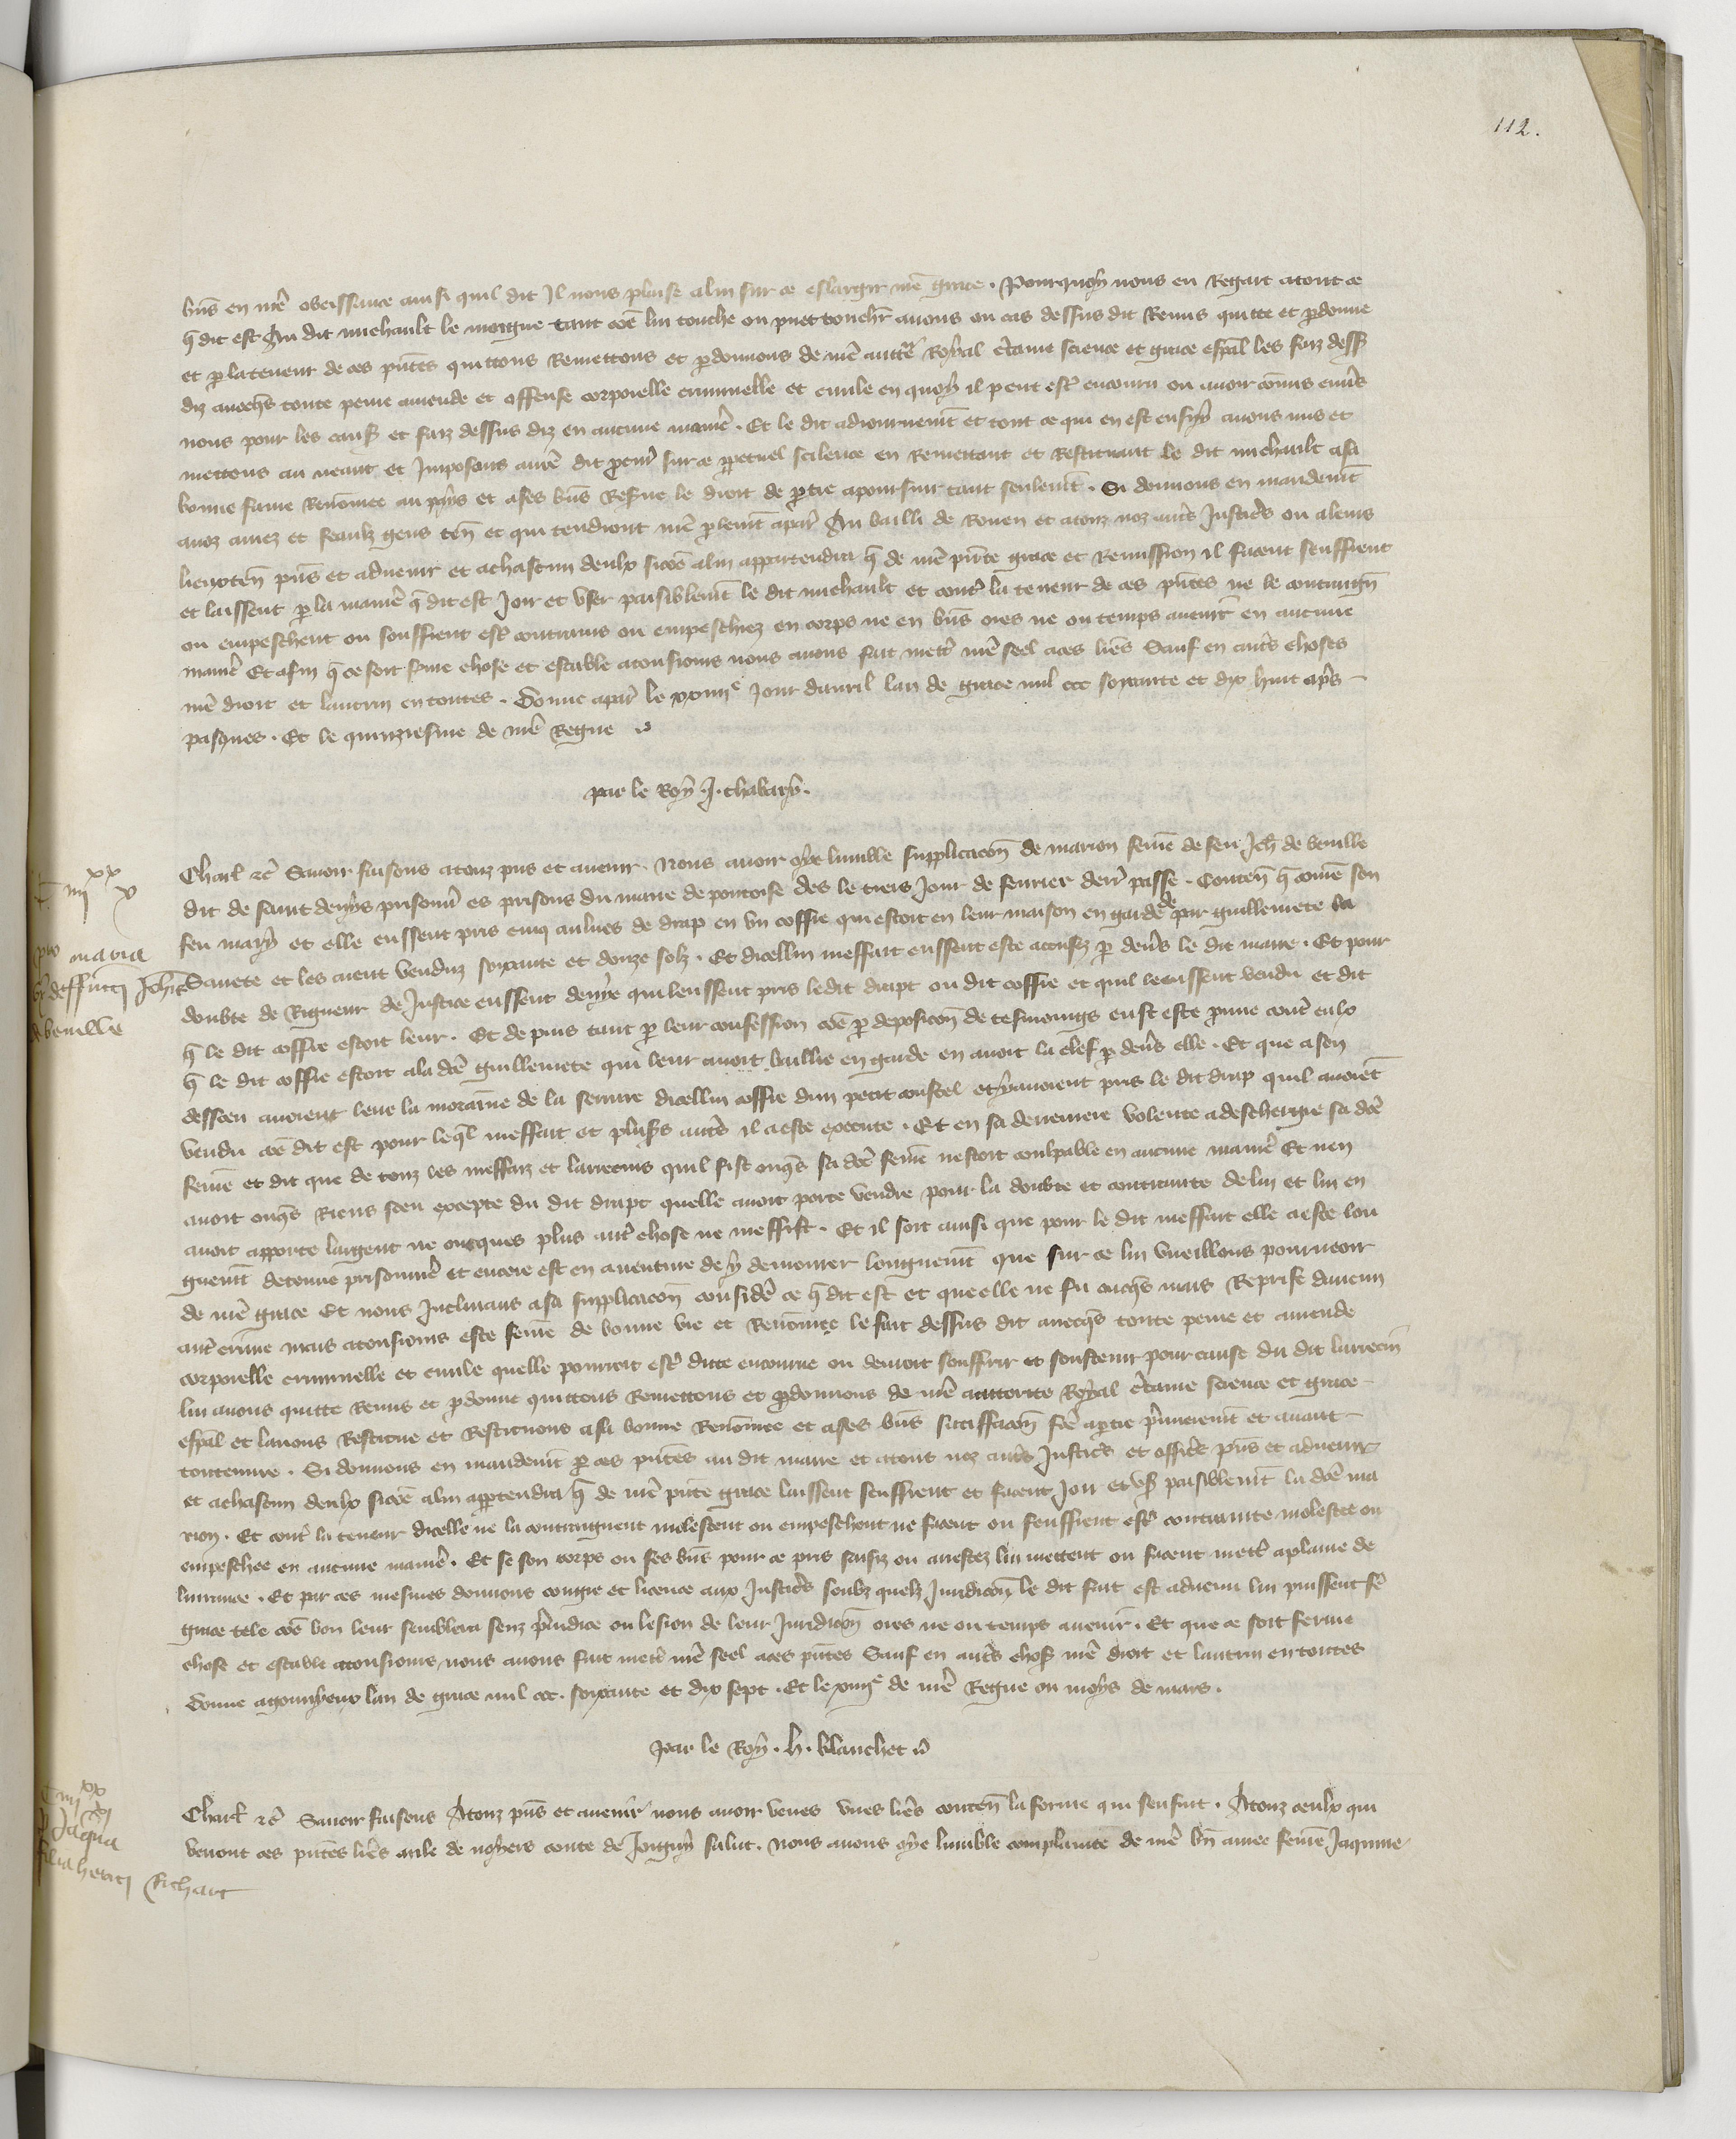 112.
bñs en nrẽ obeissance ainsi quil dit Il nous plaise alui sur ce eslargir nrẽ grace . Pourquoy nous eu Regart atout ce
q̃ dit est Au dit michault le moigne tant cõe lui touche ou puet touchr̃ auons ou cas dessus dit Remis quitte et pdonne
et p la teneur de ces pñtes quittons Remettons et pdonnons de nrẽ auttẽ Royal c̃taine science et grace esp̃al les faiz dess
diz auecqs toute peine amende et offense corporelle criminelle et ciuile en quoy il peut est̃ encouru ou auoir cõmis enũs
nous pour les causes et faiz dessus diz en aucune manie . Et le dit adiournemt et tout ce qui en est ensuy auons mis et
mettons au neant et Imposons anrẽ dit pcur̃ sur ce ppetuel scilence en Remettant et Restituant le dit michault asa
bonne fame Renõmee au pays et ases bñs Reserue le droit de ptie apoursuir tant seulemt . Si donnons en mandemt
anoz amez et feaulz gens ten̄ et qui tendront nrẽ plemt apar̃ Au bailli de Rouen et atouz noz aut̃s Justic̃s ou aleurs
lieuxten̄ pñs et aduenir et achascun deulx sicõe alui appartendra q̃ de nrẽ pñte grace et Remission il facent seuffrent
et laissent p la manie q̃ dit est Joir et user paisiblemt le dit michault et cont̃ la teneur de ces pñtes ne le contraign̄
ou empeschent ou souffrent est̃ contrains ou empeschiez en corps ne en bñs ores ne ou temps auenir en aucune
manie Et afin q̃ ce soit ferme chose et estable atousiours nous auons fait mett̃ nrẽ seel aces lr̃es Sauf en aut̃s choses
nrẽ droit et lautrui en toutes . Donne apar̃ le xxiiije Jour dauril lan de grace mil ccc soixante et dix huit ap̃s
pasques . Et le quinziesme de nrẽ Regne
par le Roy . J . chabary .
C iiijxx x
pro maria
ux̃ deffuncti Joh̃is
de beuille
Charl̃ ec̃ Sauoir faisons atouz pñs et auenir . Nous auoir oye lumble supplicacõn de marion fem̃e de feu Jeh̃ de beuille
dit de saint denys prisonñ es prisons du maire de pontoise des le tiers Jour de feurier derr̃ passe . Conten̄ q̃ com̃e son
feu mary et elle eussent pris cinq aulnes de drap en un coffre qui estoit en leur maison en garde de par guillemete la
Sauete et les aient venduz soixante et douze solz . Et dicellui meffait eussent este accusez p deũs le dit maire . Et pour
doubte de Rigueur de Justice eussent denye quil eussent pris ledit drapt ou dit coffre et quil leeussent vendu et dit
q̃ le dit coffre estoit leur . Et de puis tant p leur confession cõe p deposicõn de tesmoings eust este prouue cont̃ eulx
q̃ le dit coffre estoit ala dc̃e guillemete qui leur auoit baillie en garde en auoit la clef p deũs elle . Et que a son
desseu auoient leue la moraine de la serrure dicellui coffre dun petit coustel et y auoient pris le dit drap quil auoiet̃
vendu cõe dit est pour leq̃l meffait et pluss aut̃s il aeste execute . Et en sa derreniere volente adeschergie sa dc̃e
fem̃e et dit que de touz les meffaiz et larrecins quil fist onq̃s sa dc̃e fem̃e nestoit coulpable en aucune manie Et nen
auoit onq̃s Riens sceu excepte du dit drapt quelle auoit porte vendre pour la doubte et contrainte de lui et lui en
auoit apporte largent ne oncques plus aut̃ chose ne meffist . Et il soit ainsi que pour le dit meffait elle aeste lon
guemt detenue prisonnie et encore est en auenture de y demourer longuemt que sur ce lui vueillons pourueoir
de nrẽ grace Et nous Inclinans asa supplicacõn consider̃ ce q̃ dit est et que elle ne fu oncq̃s mais Reprise daucun
aut̃ crime mais atousiours este fem̃e de bonne vie et Renõmee le fait dessus dit auecq̃s toute peine et amende
corporelle criminelle et ciuile quelle pourroit est̃ ditte encourue ou deuoir souffrir et soustenir pour cause du dit larrecin
lui auons quitte Remis et pdonne quittons Remettons et pdonnons de nrẽ auttorite Royal c̃taine science et grace
esp̃al et lauons Restitue et Restituons asa bonne Renõmee et ases bñs satisfacõn fc̃e aptie p̃mieremt et auant
toutenure . Si donnons en mandemt p ces pñtes au dit maire et atous noz aut̃s Justic̃s et offic̃s pñs et aduenir
et achascun deulx sicõe alui apptendra q̃ de nrẽ pñte grace laissent seuffrent et facent Joir et user paisiblemt la dc̃e ma
rion . Et cont̃ la teneur dicelle ne la contraignent molestent ou empeschent ne facent ou seuffrent est̃ contrainte molestee ou
empeschee en aucune manie . Et se son corps ou ses bñs pour ce pris saisiz ou arrestez lui mettent ou facent mett̃ aplaine de
liurance . Et par ces mesmes donnons congie et licence aux Justic̃s soubz quelz Juridicõn le dit fait est aduenu lui puissent fẽ
grace tele cõe bon leur semblera senz p̃iudice ou lesion de leur Juridicõn ores ne ou temps auenir . Et que ce soit ferme
chose et estable atousiours nous auons fait mett̃ nrẽ seel aces pñtes Sauf en aut̃s choses nrẽ droit et lautrui en toutes
Donne agouuyeux lan de grace mil ccc . soixante et dix sept . Et le xiiije de nrẽ Regne ou moys de mars .
Par le Roy . h . blanchet
C iiijxx xj
p Jaqua
filia henrici Richart
Charl̃ ec̃ Sauoir faisons Atouz pñs et auenir nous auoir veues unes lr̃es conten̄ la forme qui sensuit . Atouz ceulx qui
verront ces pñtes lr̃es mile de noyers conte de Joigny salut . Nous auons oye lumble complainte de nrẽ bn̄ amee fem̃e Jaquine